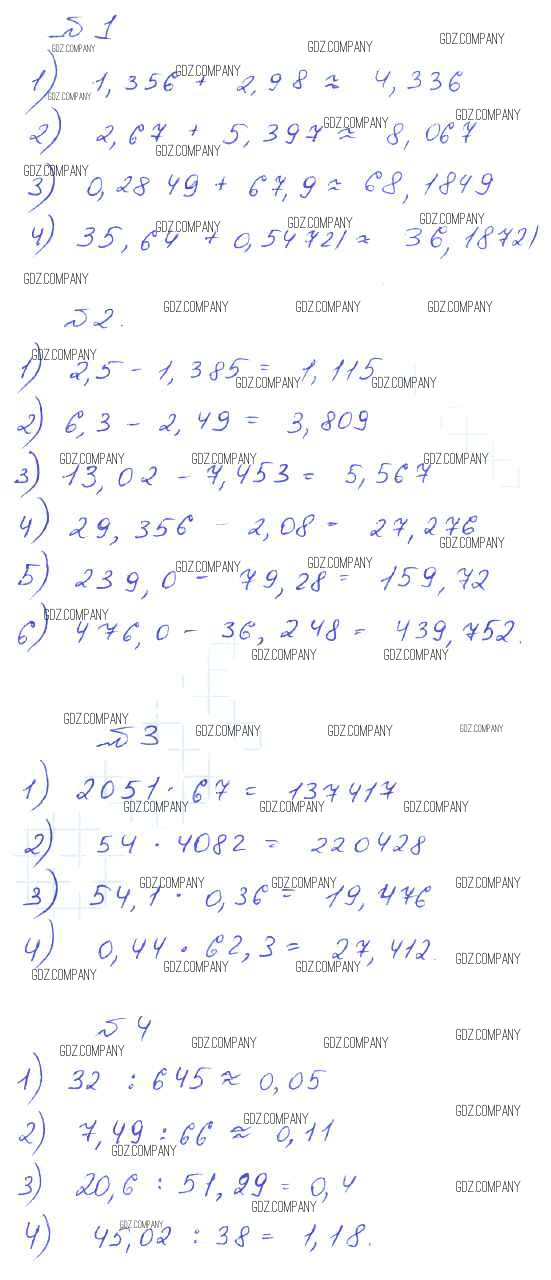 № 1
1) 1,356 + 2,98 ≈ 4,336
2) 2,67 + 5,397 ≈ 8,067
3) 0,2849 + 67,9 ≈ 68,1849
4) 35,64 + 0,54721 ≈ 36,18721
№ 2.
1) 2,5 - 1,385 = 1,115
2) 6,3 - 2,49 = 3,809
3) 13,02 - 7,453 = 5,567
4) 29,356 - 2,08 = 27,276
5) 239,0 - 79,28 = 159,72
6) 476,0 - 36,248 = 439,752.
№ 3
1) 2051 · 67 = 137417
2) 54 · 4082 = 220428
3) 54,1 · 0,36 = 19,476
4) 0,44 · 62,3 = 27,412.
№ 4
1) 32 : 645 ≈ 0,05
2) 7,49 : 66 ≈ 0,11
3) 20,6 : 51,29 = 0,4
4) 45,02 : 38 = 1,18.
GDZ.COMPANY